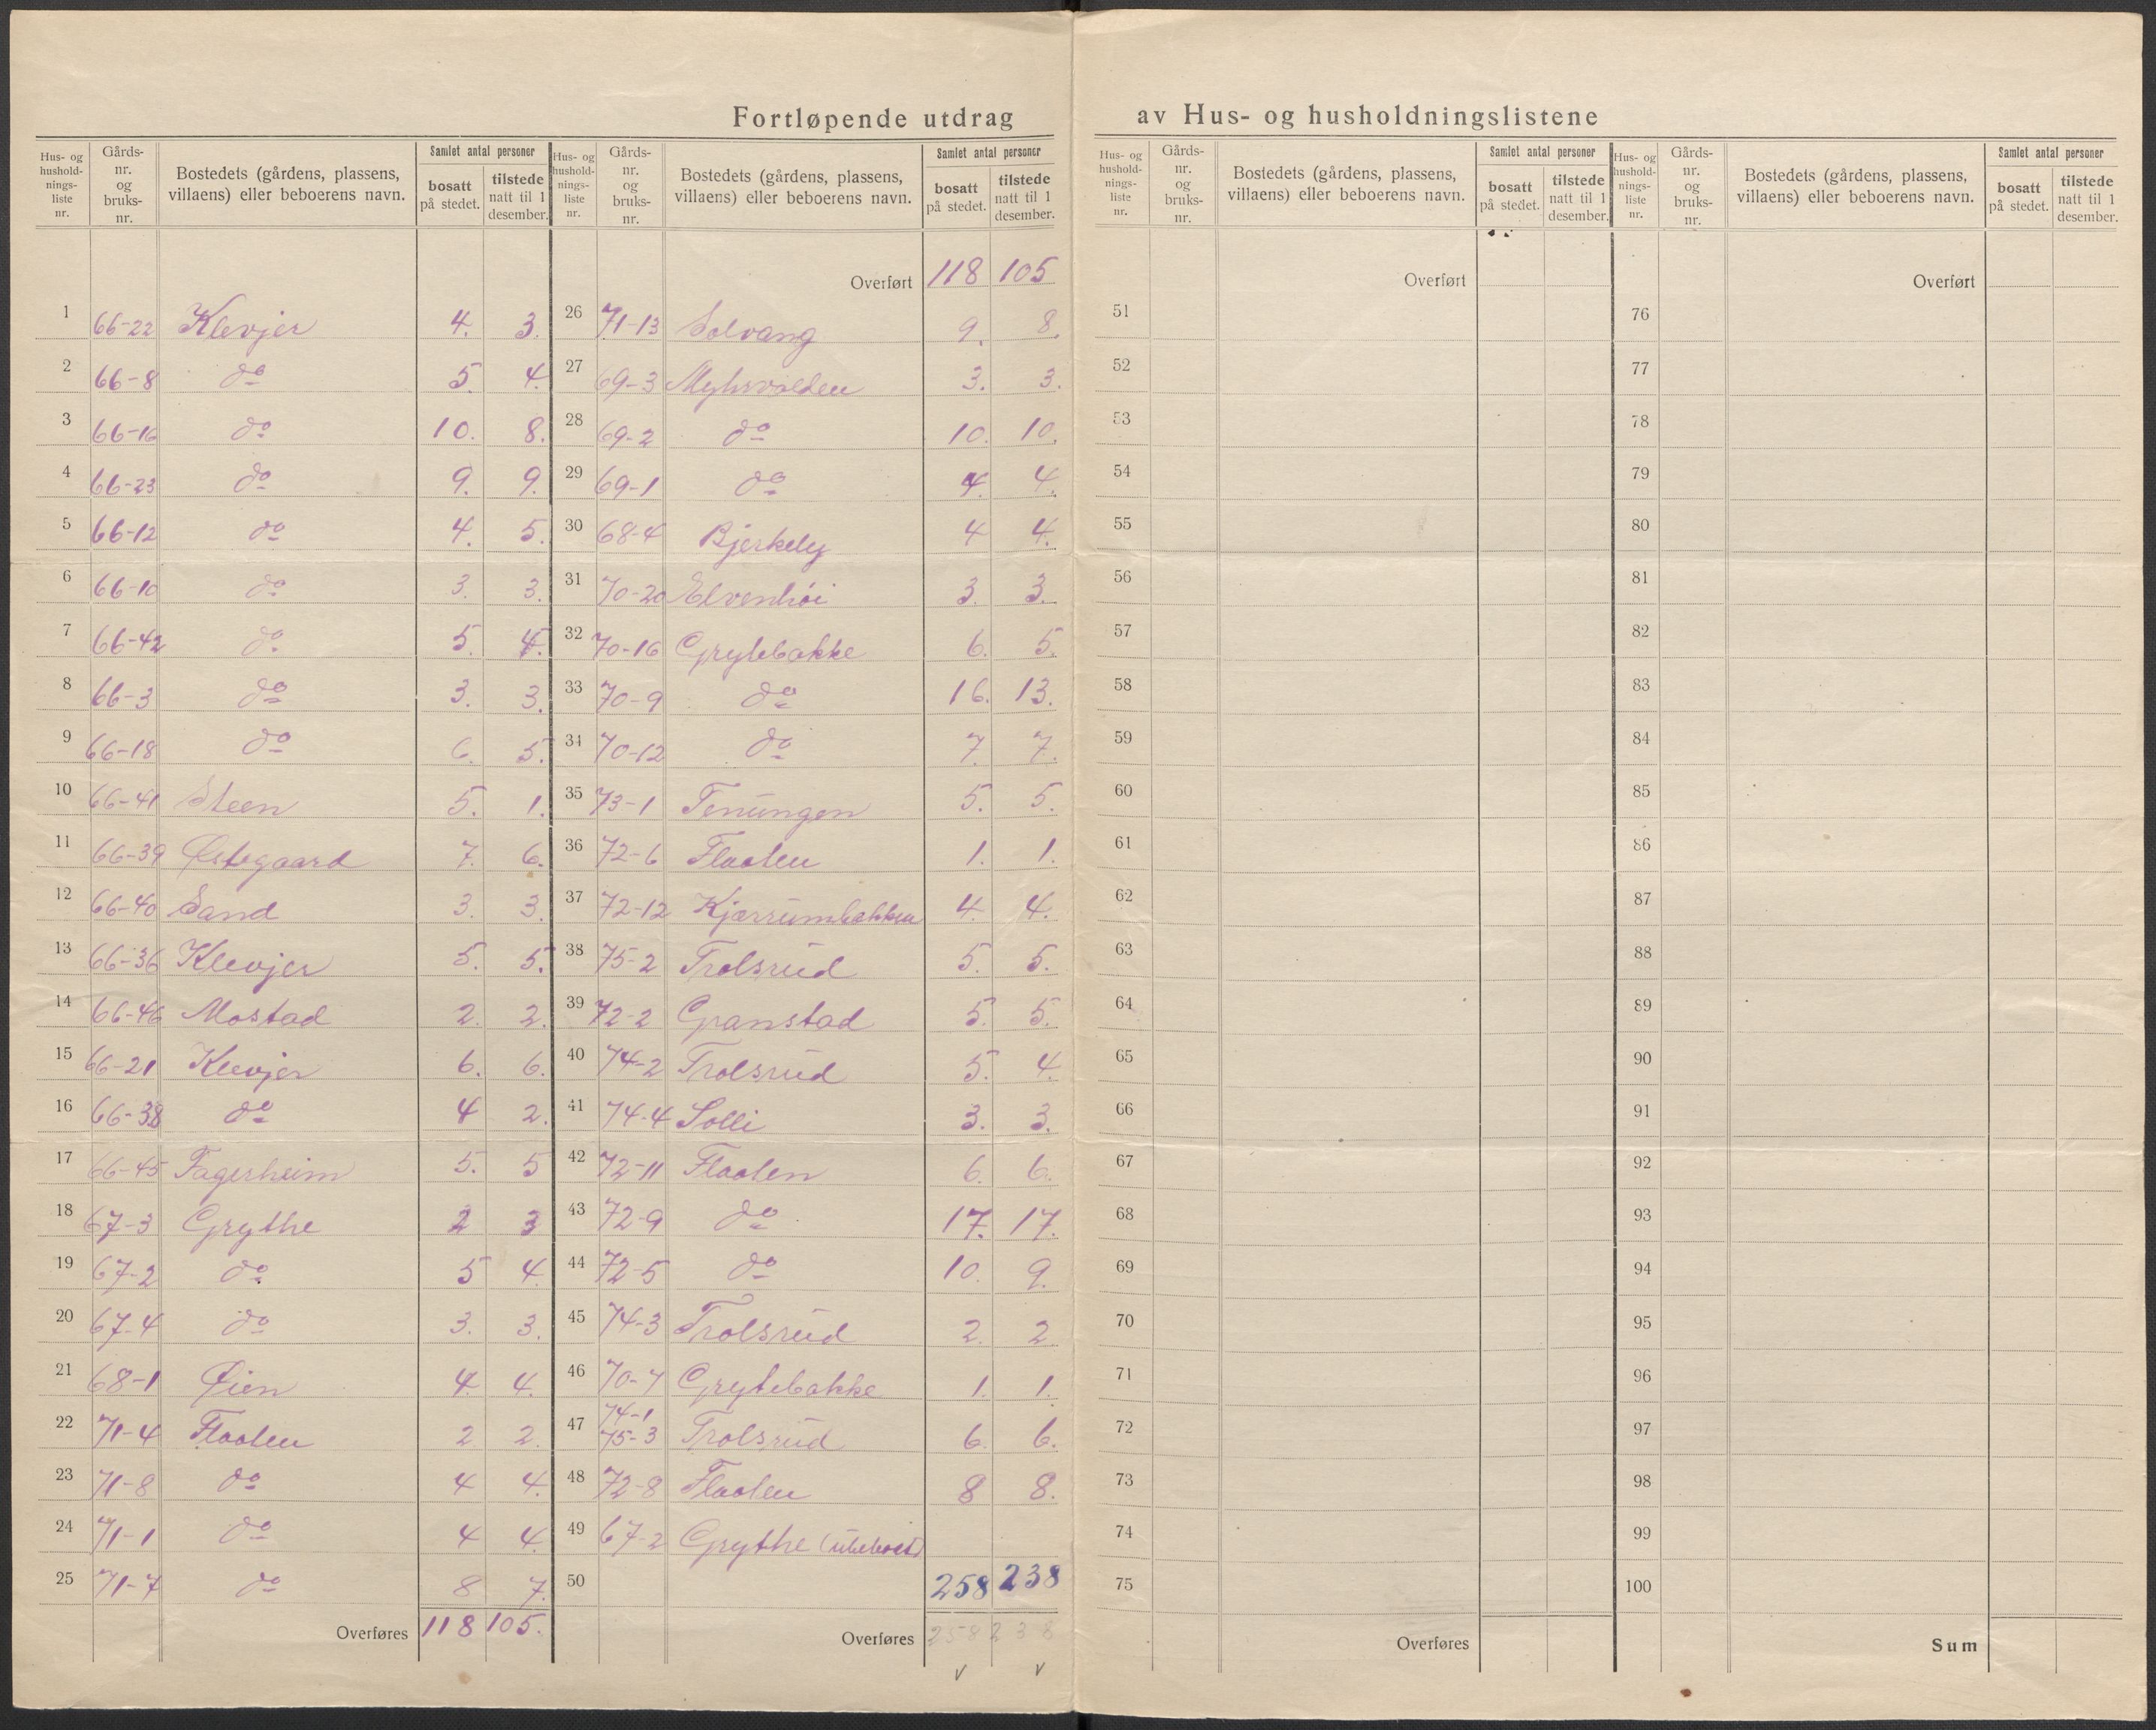 Fortløpende utdrag av Hus- og husholdningslistene
Hus- og husholdningsliste nr. | Gårdsnr. og bruksnr. | Bostedets (gårdens, plassens, villaens) eller beboerens navn. | Samlet antal personer | bosatt på stedet. | tilstede natt til 1 desember.
1 66-22 Klevjer 4. 3.
2 66-8 do 5 4.
3 66-16 do 10. 8.
4 66-23 do 9. 9.
5 66-12 do 4. 5.
6 66-10 do 3. 3.
7 66-42 do 5. 4.
8 66-3 do 3. 3.
9 66-18 do 6. 5.
10 66-41 Steen 5. 1.
11 66-39 Østegaard 7. 6.
12 66-40 Sand 3. 3.
13 66-36 Klevjer 5. 5.
14 66-46 Mostad 2. 2.
15 66-21 Klevjer 6. 6.
16 66-38 do 4 2.
17 66-45 Fagerheim 5. 5
18 67-3 Grythe 2 3
19 67-2 do 5 4.
20 67-4 do 3. 3.
21 68-1 Øien 4 4.
22 71-4 Flaalen 2 2.
23 71-8 do 4 4.
24 71-1 do 4 4.
25 71-7 do 8 7.
Overføres 118 105.
Hus- og husholdningsliste nr. | Gårdsnr. og bruksnr. | Bostedets (gårdens, plassens, villaens) eller beboerens navn. | Samlet antal personer | bosatt på stedet. | tilstede natt til 1 desember.
Overført 118 105
26 71-13 Solvang 9. 8.
27 69-3 Myhrvolden 3. 3.
28 69-2 do 10. 10.
29 69-1 do 4. 4.
30 68-4 Bjerkely 4 4.
31 70-20 Elvenhøi 3. 3.
32 70-16 Grytebakke 6. 5.
33 70-9 do 16. 13.
34 70-12 do 7. 7.
35 73-1 Tenungen 5. 5.
36 72-6 Flaalen 1. 1.
37 72-12 Kjærrumbakken 4. 4.
38 75-2 Trolsrud 5. 5.
39 72-2 Granstad 5. 5.
40 74-2 Trolsrud 5. 4.
41 74-4 Solli 3. 3.
42 72-11 Flaalen 6. 6.
43 72-9 do 17. 17.
44 72-5 do 10. 9.
45 74-3 Trolsrud 2. 2.
46 70-7 Grytebakke 1. 1.
47 74-1 75-3 Trolsrud 6. 6.
48 72-8 Flaalen 8 8.
49 67-2 Grythe (ubeboet)
50 258 238
Overføres 258 238
v v
Hus- og husholdningsliste nr. | Gårdsnr. og bruksnr. | Bostedets (gårdens, plassens, villaens) eller beboerens navn. | Samlet antal personer | bosatt på stedet. | tilstede natt til 1 desember.
Overført
51
52
53
54
55
56
57
58
59
60
61
62
63
64
65
66
67
68
69
70
71
72
73
74
75
Overføres
Hus- og husholdningsliste nr. | Gårdsnr. og bruksnr. | Bostedets (gårdens, plassens, villaens) eller beboerens navn. | Samlet antal personer | bosatt på stedet. | tilstede natt til 1 desember.
Overført
76
77
78
79
80
81
82
83
84
85
86
87
88
89
90
91
92
93
94
95
96
97
98
99
100
Sum